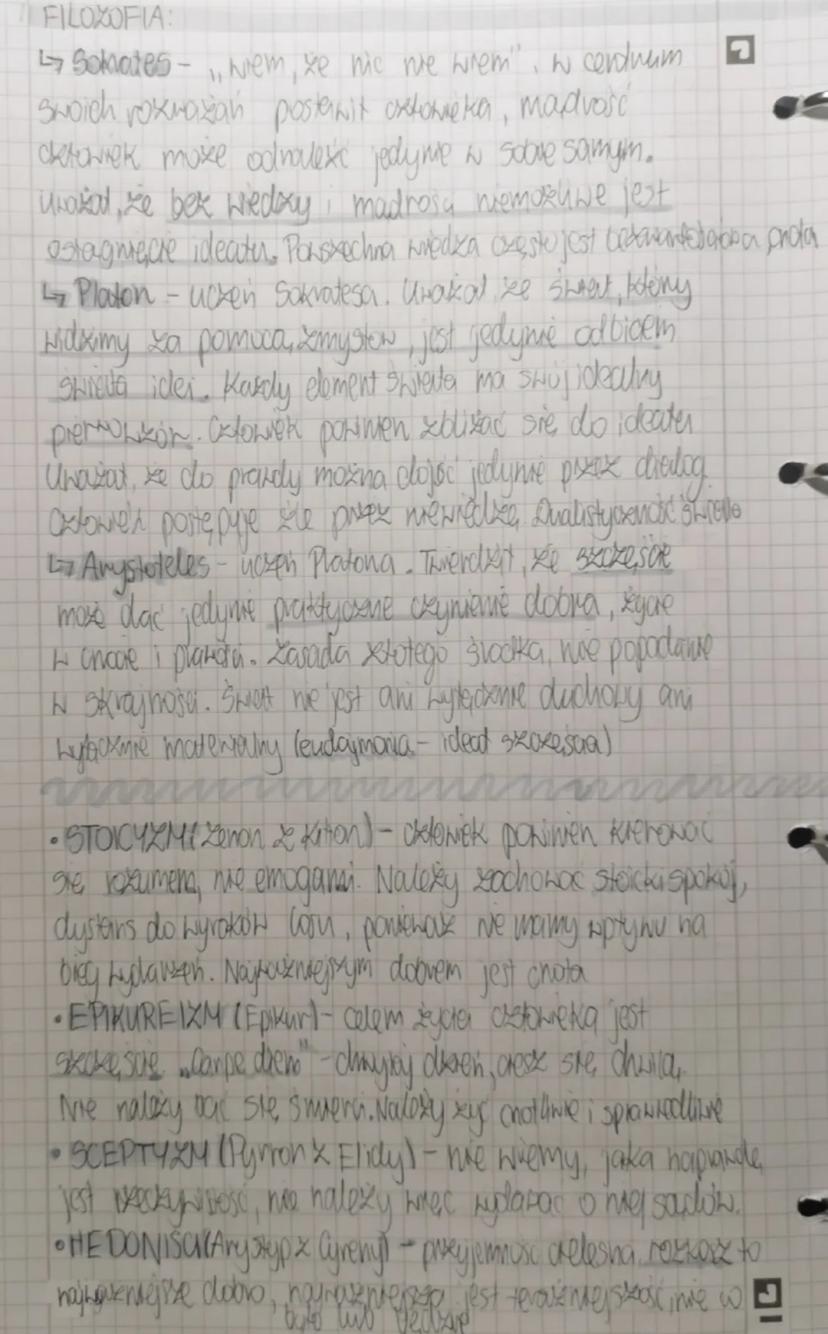 FILOZOFIA:
↳ Sokrates - „wiem, że nic nie wiem". w centrum
swoich rozważań postawił człowieka, mądrość
człowiek może odnaleźć jedynie w sobie samym.
uważał, że bez wiedzy i mądrości niemożliwe jest
osiągnięcie ideału. Powszechna wiedza często jest
↳ Platon - uczeń Sokratesa. Uważał że świat, który
widzimy za pomocą zmysłów, jest jedynie odbiciem
świata idei. Każdy element świata ma swój idealny
pierwowzór. Człowiek powinien zbliżać się do ideału
Uważał, że do prawdy można dojść jedynie przez dialog.
Człowiek postępuje źle przez niewiedzę, Dualistyczność świata
↳ Arystoteles - uczeń Platona. Twierdził, że szczęście
może dać jedynie praktyczne czynienie dobra, życie
w cnocie i prawdzie. Zasada złotego środka, nie popadanie
w skrajności. Świat nie jest ani wyłącznie duchowy ani
wyłącznie materialny (eudajmonia - ideał szczęścia)
• STOICYZM (Zenon z Kition) - człowiek powinien kierować
się rozumem, nie emocjami. Należy zachować stoicki spokój,
dystans do wyroków losu, ponieważ nie mamy wpływu na
bieg wydarzeń. Najważniejszym dobrem jest cnota
• EPIKUREIZM (Epikur) - celem życia człowieka jest
szczęście „Carpe diem" - chwytaj dzień, ciesz się chwilą,
Nie należy bać się śmierci. Należy żyć cnotliwie i sprawiedliwie
• SCEPTYZM (Pyrron z Elidy) - nie wiemy, jaka naprawdę
jest rzeczywistość, nie należy więc wydawać o niej sądów.
• HEDONIŚCI (Arystyp z Cyreny) - przyjemność cielesna, rozkosz to
najważniejsze dobro, najważniejsza jest teraźniejszość, nie to
było lub będzie